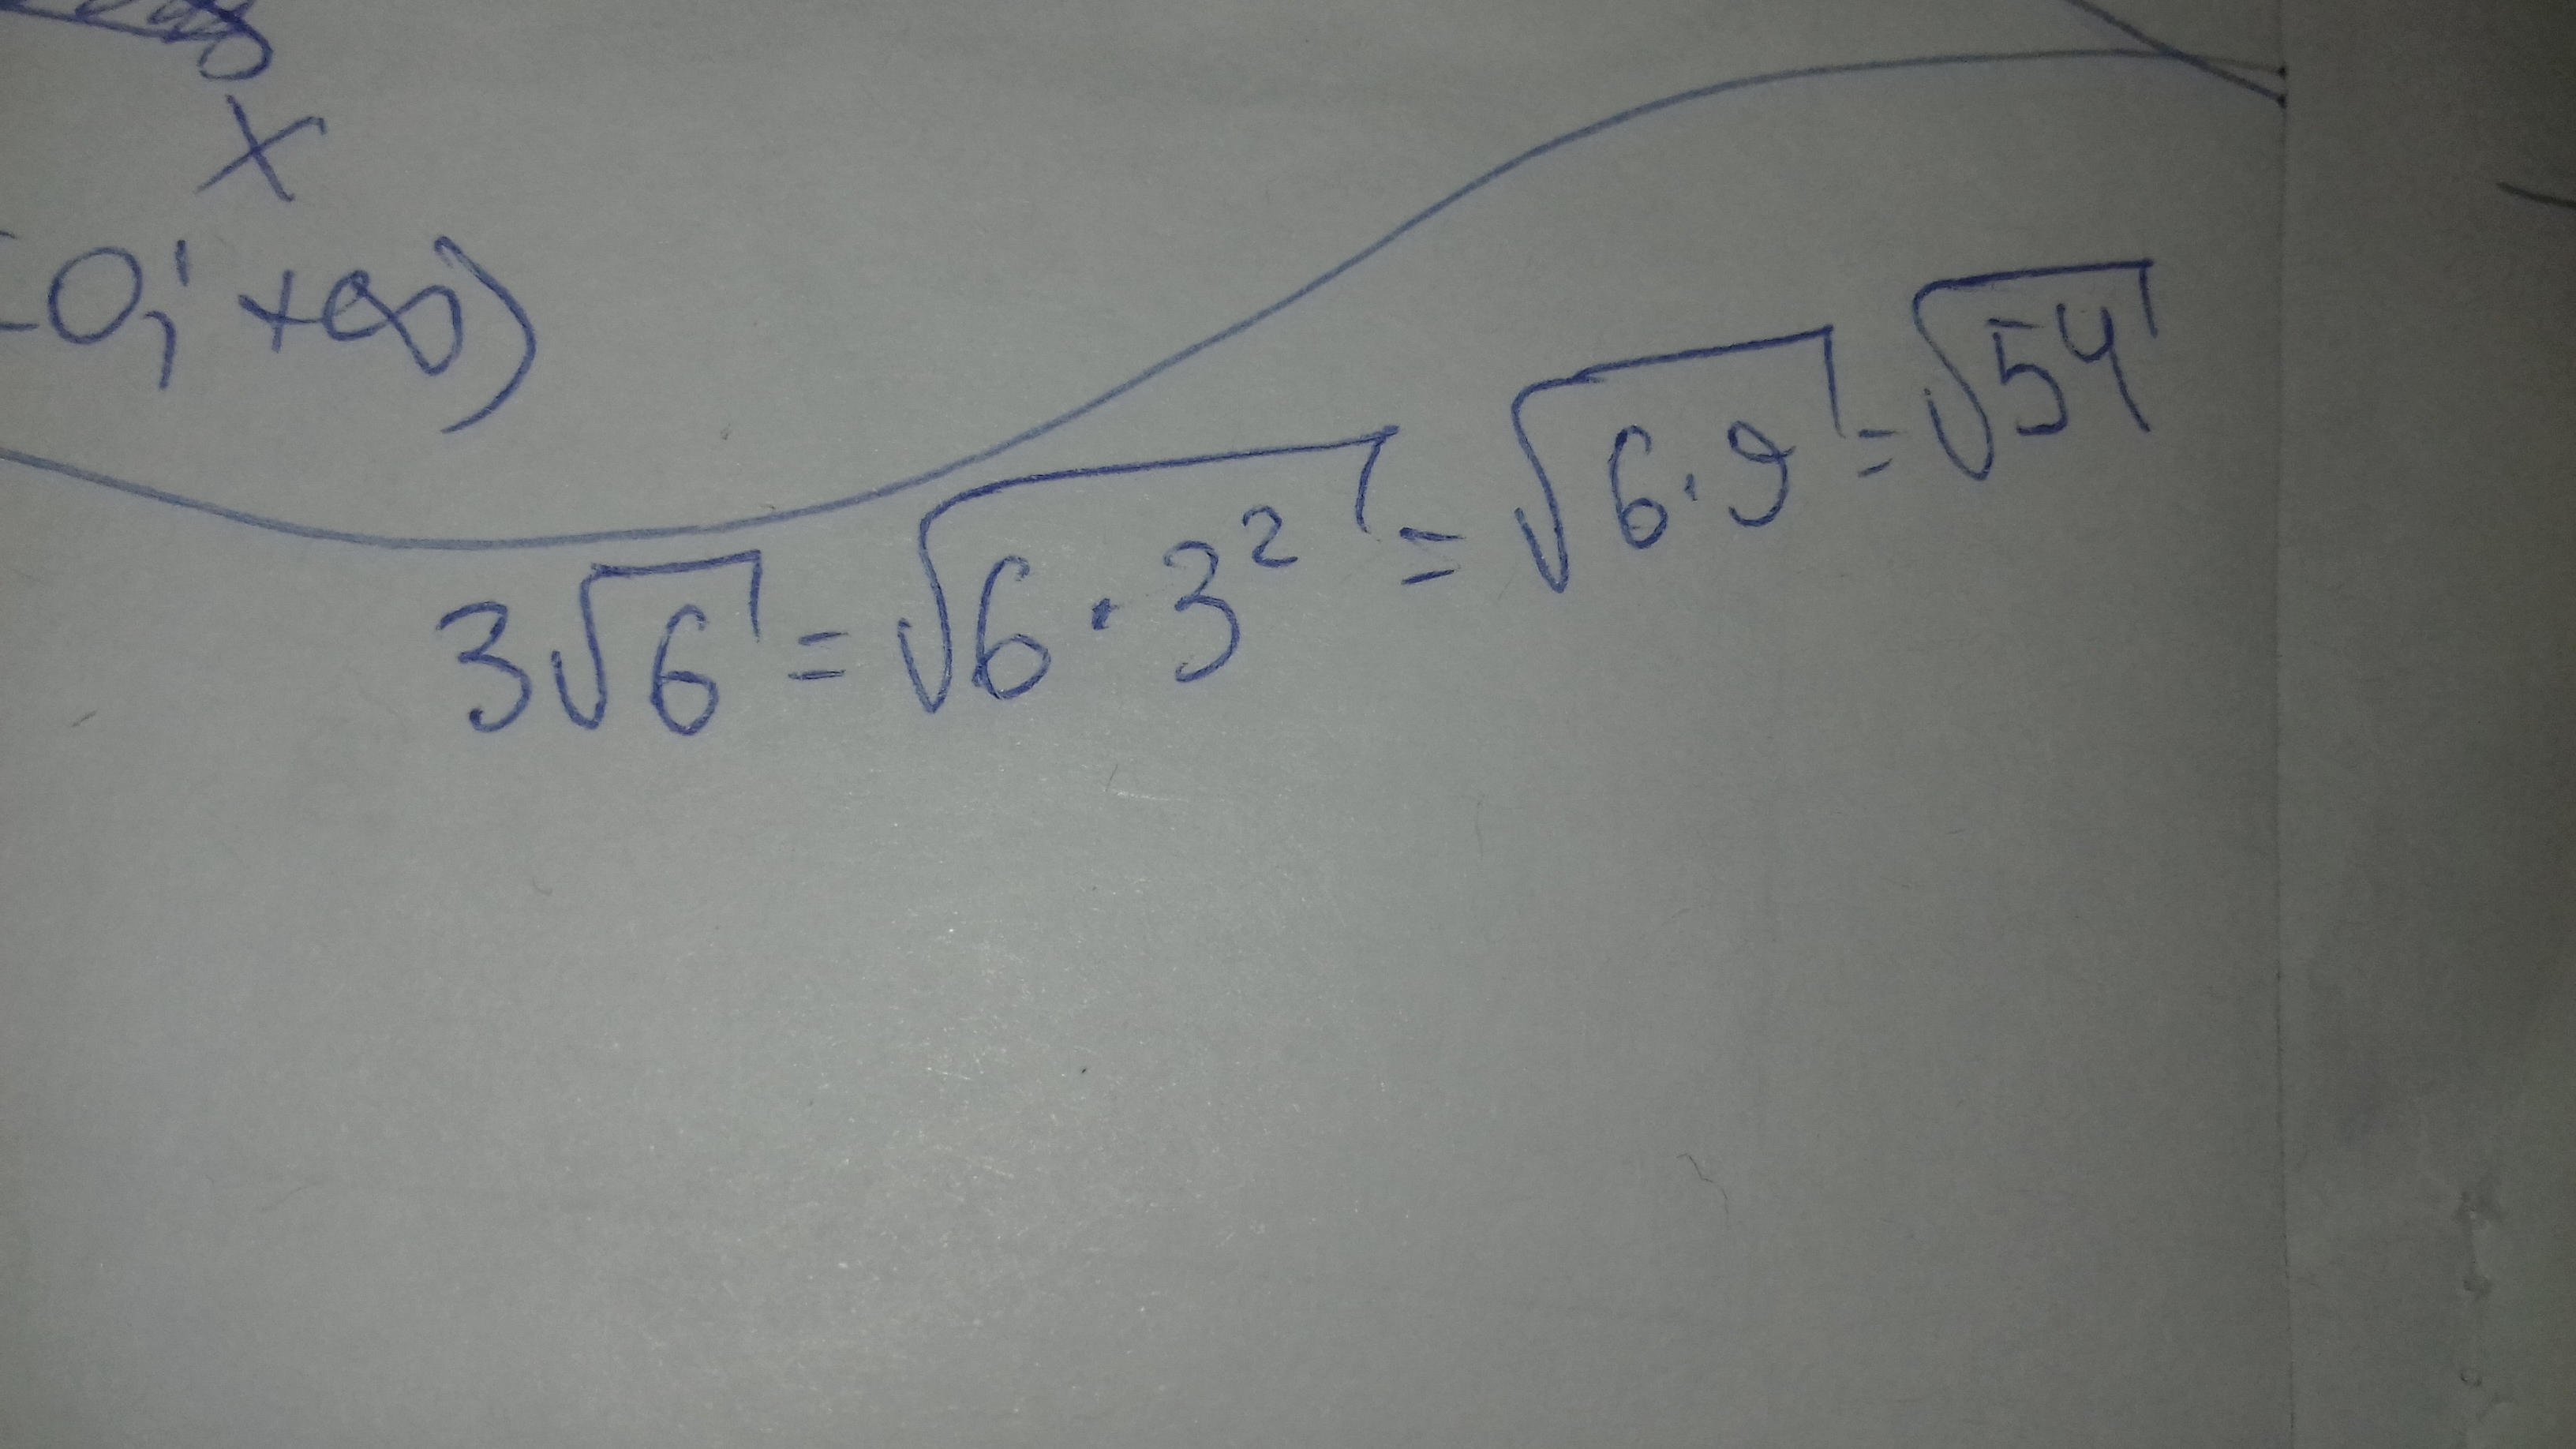 x
0; +∞)
3√6 = √6·3² = √6·9 = √54